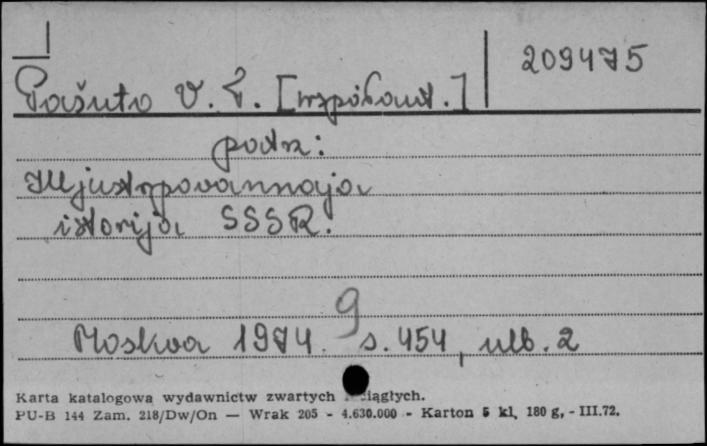 209475
Pašuto V. T. [współaut.]
patrz:
Illjustrpovannaja
istorija SSSR.
9
Moskva 1974. s. 454, nlb. 2
Karta katalogowa wydawnictw zwartych ciągłych.
PU-B 144 Zam. 218/Dw/On — Wrak 205 - 4.630.000 - Karton 5 kl, 180 g, - III.72.